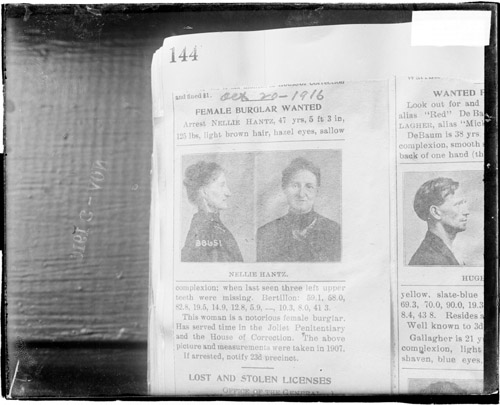 144
and fined $1.
Oct 20-1916
FEMALE BURGLAR WANTED
Arrest NELLIE HANTZ, 47 yrs, 5 ft 3 in,
125 lbs, light brown hair, hazel eyes, sallow
NELLIE HANTZ.
complexion; when last seen three left upper
teeth were missing. Bertillon: 59.1, 58.0,
82.8, 19.5, 14.9, 12.8, 5.9, —, 19.3, 8.0, 41.3.
This woman is a notorious female burglar.
Has served time in the Joliet Penitentiary
and the House of Correction. The above
picture and measurements were taken in 1907.
If arrested, notify 23d precinct.
LOST AND STOLEN LICENSES
WANTED F
Look out for and
alias "Red" De Ba
LAGHER, alias "Mic
DeBaum is 38 yrs
complexion, smooth
back of one hand (th
HUGH
yellow, slate-blue
69.3, 70.0, 90.0, 19.3
8.4, 43.8. Resides a
Well known to 3d
Gallagher is 21 y
complexion, light
shaven, blue eyes
NOV-3-1916